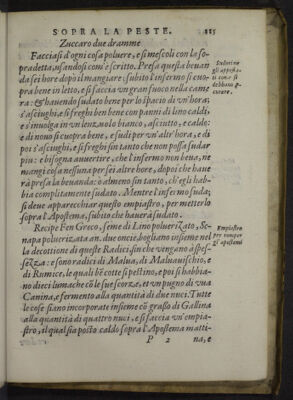 SOPRA LA PESTE. 115
Zuccaro due dramme
Facciasi d'ogni cosa poluere, e si mescoli con la so-
pradetta, usandosi com'è scritto. Presa questa beuan
da sei hore dopo il mangiare: subito l'infermo si cuo-
pra bene in letto, e si faccia un gran fuoco nella came
ra: & hauendo sudato bene per lo spacio di vn'hora;
s'asciughi, e si freghi ben bene con panni di lino caldi,
e s'inuolga in vn lenzuolo bianco, asciutto, e caldo:
e di nouo si cuopra bene, e sudi per vn'altr'hora, e di
poi s'asciughi, e si freghi sin tanto che non possa sudar
piu: e bisogna auuertire, che l'infermo non beua, ne
mangi cosa nessuna per sei altre hore, dopoi che haue
rà presa la beuanda: ò almeno sin tanto, ch'egli hab-
bia compitamente sudato. Mentre l'infermo suda;
si deue apparecchiar questo empiastro, per metterlo
sopra l'Apostema, subito che hauerà sudato.
Recipe Fen Greco, seme di Lino poluerizato, Se-
napa poluerizata an. due oncie, bogliano insieme nel
la decottione di queste Radici, sin che vengano à spes-
sezza: e sono radici di Malua, di Maluauischio, e
di Rumice, le quali bē cotte si pestino, e poi si habbia-
no dieci lumache cō le sue scorza, et vn pugno di vua
Canina, e fermento alla quantità di due nuci. Tutte
le cose siano incorporate insieme cō grasso di Gallina
alla quantità di quattro nuci, e si faccia vn'empia-
stro, il qual sia posto caldo sopra l'Apostema matti-
P 2 na, e
gli
curare.
Empiastro
per romper
gli apostemi